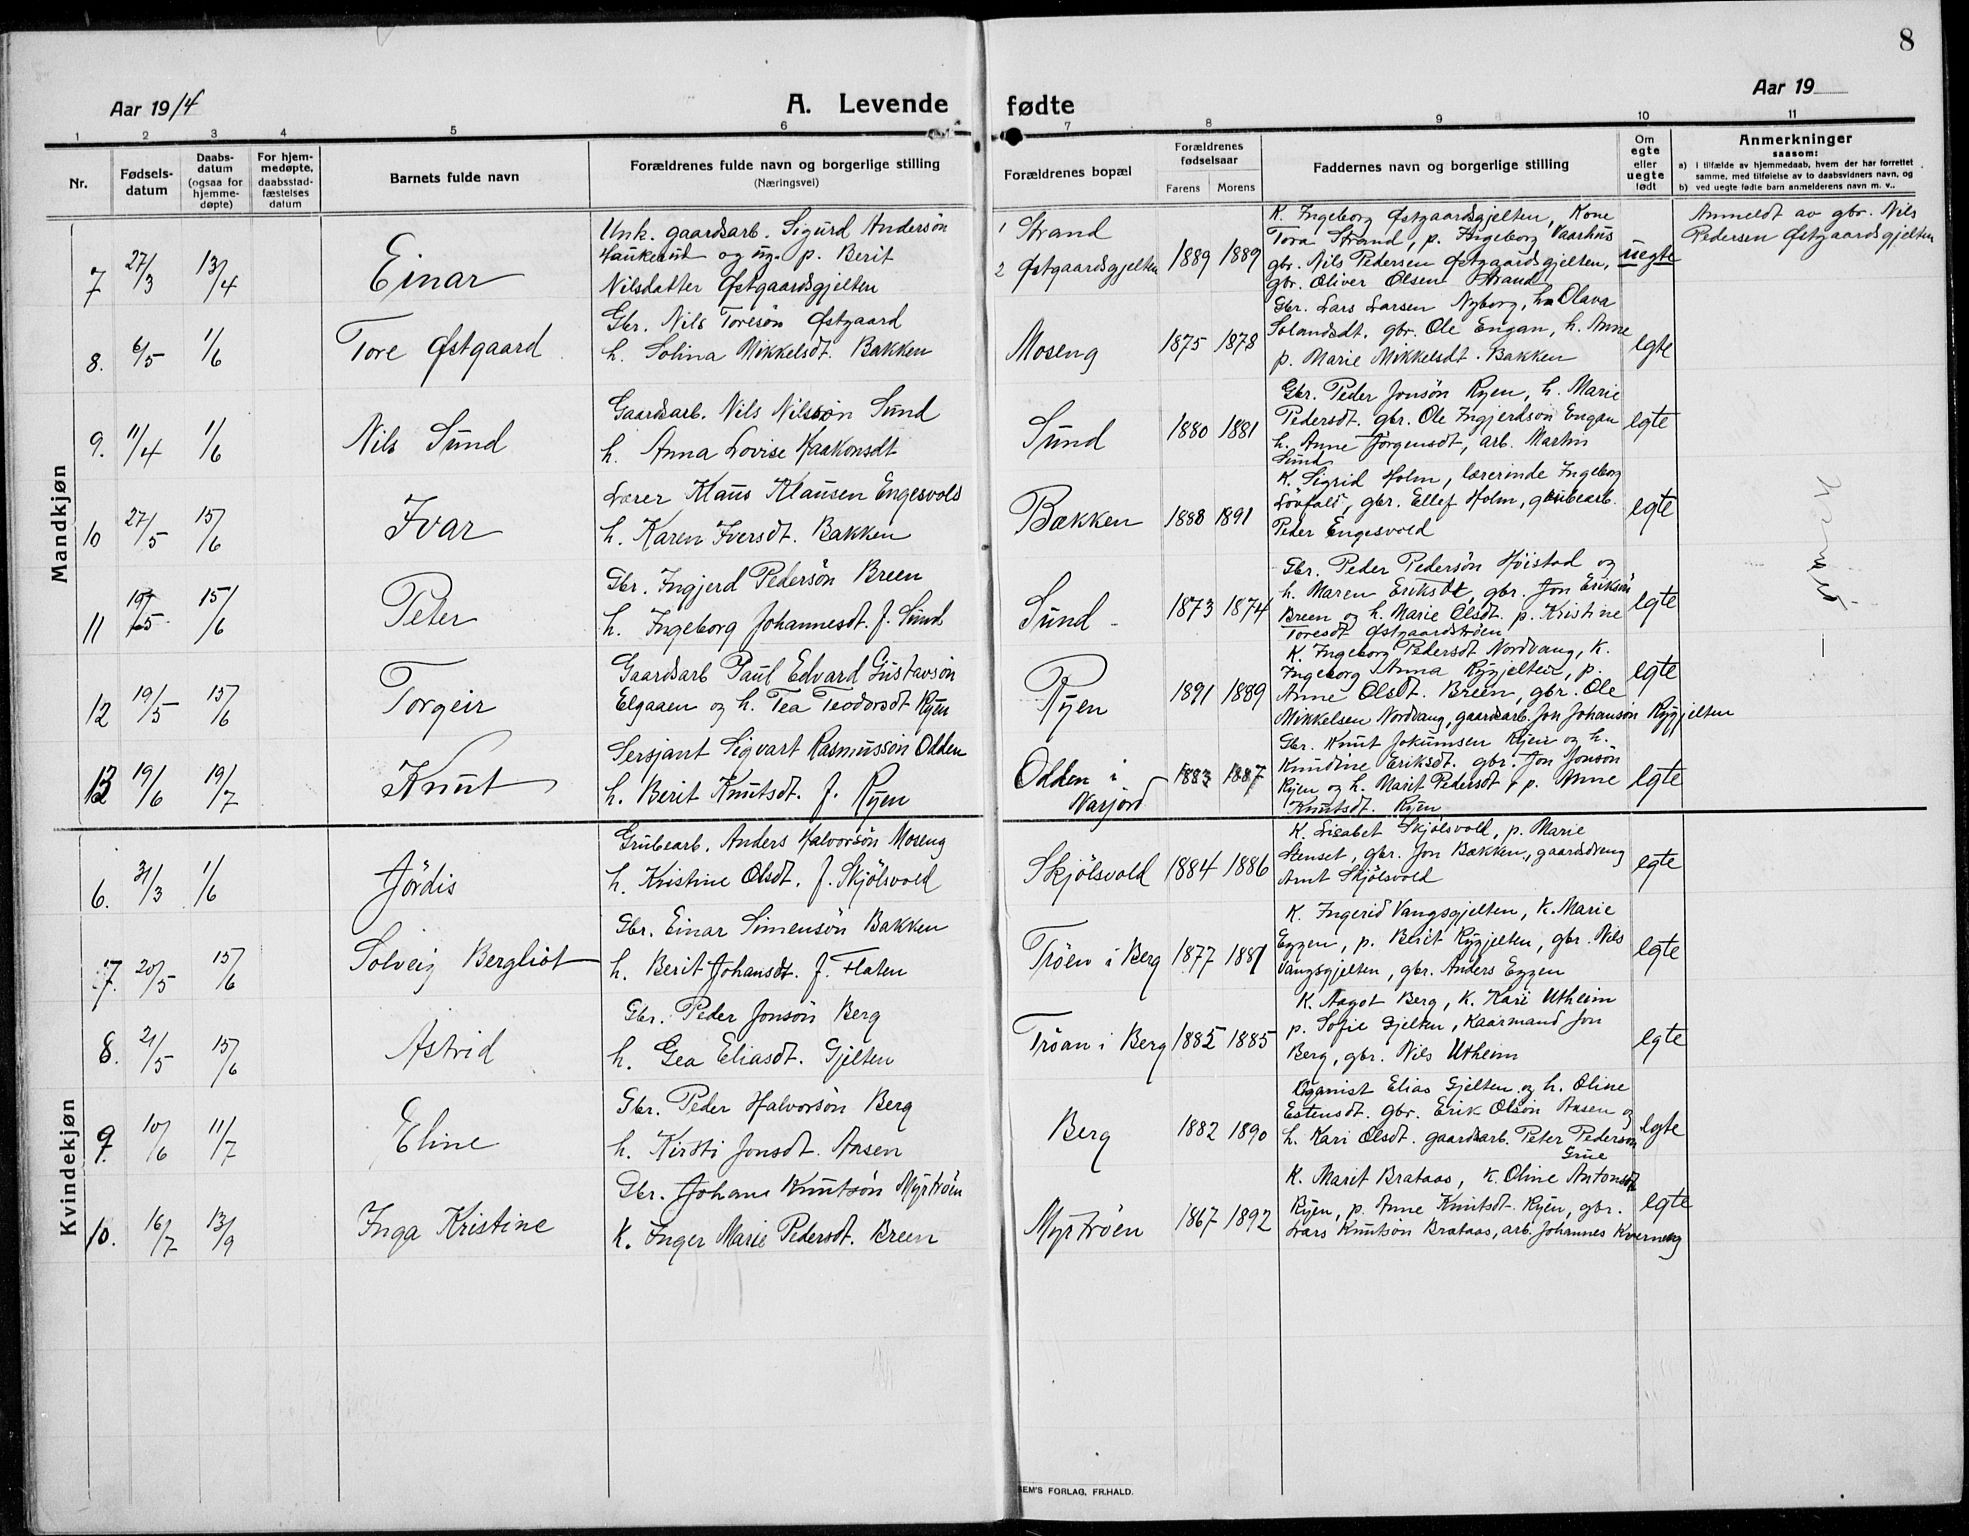 8
Aar 1914
A. Levende fødte
Aar 19
1 2 3 4 5 6 7 8 9 10 11
Nr.
Fødsels-
datum
Daabs-
datum
(ogsaa for
hjemme-
døpte)
For hjem-
medøpte,
daabsstad-
fæstelses
datum
Barnets fulde navn
Forældrenes fulde navn og borgerlige stilling
(Næringsvei)
Forældrenes bopæl
Forældrenes
fødselsaar
Farens Morens
Faddernes navn og borgerlige stilling
Om
egte
eller
uegte
født
Anmerkninger
saasom:
a) I tilfælde av hjemmedaab, hvem der har forrettet
samme, med tilføielse av to daabsvidners navn, og
b) ved uegte fødte barn anmelderens navn m. v..
Mandkjøn
7 27/3 13/4 Einar
Unk. gaardsarb. Sigurd Andersön
Haukerud og ug. p. Berit
Nilsdatter Østgaardsgjelten
1 Strand
2 Østgaardsgjelten
1889 1889
K. Ingeborg Østgaardsgjelten, Kone
Tora Strand, p. Ingeborg Vaarhus
gbr. Nils Pedersen Østgaardsgjelten,
gbr. Oliver Olsen Strand
uegte
Anmeldt av gbr. Nils
Pedersen Østgaardsgjelten
8. 6/5 1/6 Tore Østgaard
Gbr. Nils Toresön Østgaard
h. Solina Mikkelsdt. Bakken
Moseng 1875 1878
Gbr. Lars Larsen Nyborg, h. Olava
Solandsdt. gbr. Ole Engan, h. Anne
p. Marie Mikkelsdt. Bakken
egte
9. 11/4 1/6 Nils Sund
Gaardsarb. Nils Nilssön Sund
h. Anna Lovise Haakonsdt
Sund 1880 1881
Gbr. Peder Jonsön Ryen, h. Marie
Pedersdt. gbr. Ole Ingjerdsön Engan
h. Anne Jörgensdt, arb. Martin
Sund
egte
10 27/5 15/6 Ivar
Lærer Klaus Klausen Engesvold
h. Karen Iversdt. Bakken
Bækken 1888 1891
K. Sigrid Holm, lærerinde Ingeborg
Lövfald, gbr. Ellef Holm, grubearb.
Peder Engesvold
egte
11 19/5 15/6 Peter
Gbr. Ingjerd Pedersön Breen
h. Ingeborg Johannesdt. f. Sund
Sund 1873 1874
Gbr. Peder Pedersön Höistad og
h. Maren Eriksdt, gbr. Jon Eriksön
Breen og h. Marie Olsdt. p. Kristine
Toresdt Østgaardströen
egte
12 19/5 15/6 Torgeir
Gaardsarb Paul Edvard Gustavsön
Elgaaen og h. Tea Teodorsdt Ryen
Ryen 1891 1889
K. Ingeborg Pedersdt Nordvang, K.
Ingeborg Anna Rygjelten, p.
Anne Olsdt. Breen, gbr. Ole
Mikkelsen Nordvang, gaardsarb. Jon Johansön Rygjelten
egte
13 19/6 19/7 Knut
Sersjant Sigvart Rasmussön Odden
h. Berit Knutsdt. f. Ryen
Odden i
Narjord
1883 1887
Gbr. Knut Jokumsen Ryen og h.
Knudine Eriksdt. gbr. Jon Jonsön
Ryen og h. Marit Pedersdt, p. Anne
Knutsdt. Ryen
egte
Kvindekjøn
6. 31/3 1/6 Jördis
Grubearb. Anders Halvorsön Moseng
h. Kristine Olsdt. f. Skjölsvold
Skjölsvold 1884 1886
K. Lisabet Skjölsvold, p. Marie
Stenset, gbr. Jon Bækken, gaardsdreng
Arnt Skjölsvold
egte
7. 20/5 15/6 Solveig Bergliot
Gbr. Einar Simensön Bakken
h. Berit Johansdt. f. Flaten
Tröen i Berg 1877 1881
K. Ingerid Vangsgjelten, K. Marie
Eggen, p. Berit Rygjelten, gbr. Nils
Vangsgjelten, gbr. Anders Eggen
egte
8. 21/5 15/6 Astrid
Gbr. Peder Jonsön Berg
h. Gea Eliasdt. Gjelten
Tröan i Berg 1885 1885
K. Aagot Berg, K. Kari Utheim
p. Sofie Gjelten, Kaarmand Jon
Berg, gbr. Nils Utheim
egte
9. 10/6 11/7 Eline
Gbr. Peder Halvorsön Berg
h. Kirsti Jonsdt. Aasen
Berg 1882 1890
Organist Elias Gjelten og h. Oline
Estensdt. gbr. Erik Olsön Aasen og
h. Kari Olsdt. gaardsarb. Peter Pedersön
Grue
egte
10. 16/7 13/9 Inga Kristine
Gbr. Johans Knutsön Myrtröen
K. Inger Marie Pedersdt. Breen
Myrtröen 1867 1892
K. Marit Brataas, K. Oline Antonsdt
Ryen, p. Anne Knutsdt. Ryen, gbr.
Lars Knutsön Brataas, arb. Johannes Kverneng
egte
REM'S FORLAG, FR.HALD.